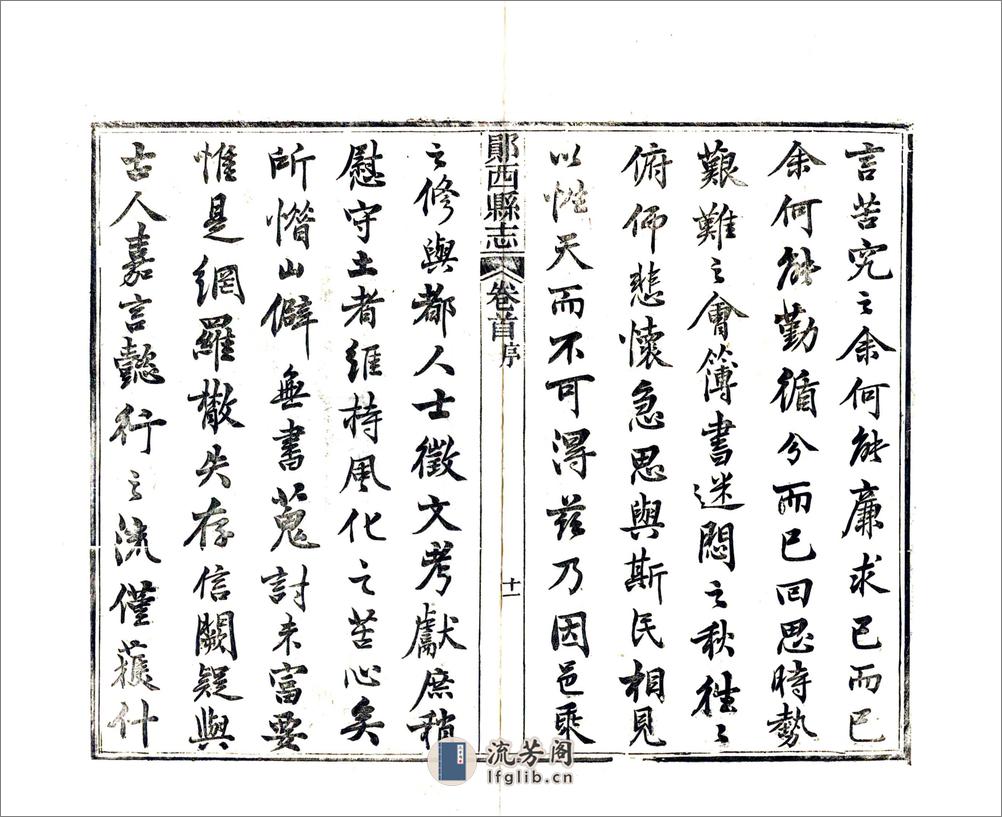 言苦究之余何能廉求已而已
余何能勤循分而已回思時勢
艱難之會簿書迷悶之秋往々
俯仰悲懷急思與斯民相見
以性天而不可得茲乃因邑乘
郧西縣志 卷首 序 十一
之修與都人士徵文考獻庶稍
慰守土者維持風化之苦心矣
所憯山僻無書蒐討未富要
惟是網羅散失存信闕疑與
古人嘉言懿行之流僅獲什
流芳阁
lfglib.cn